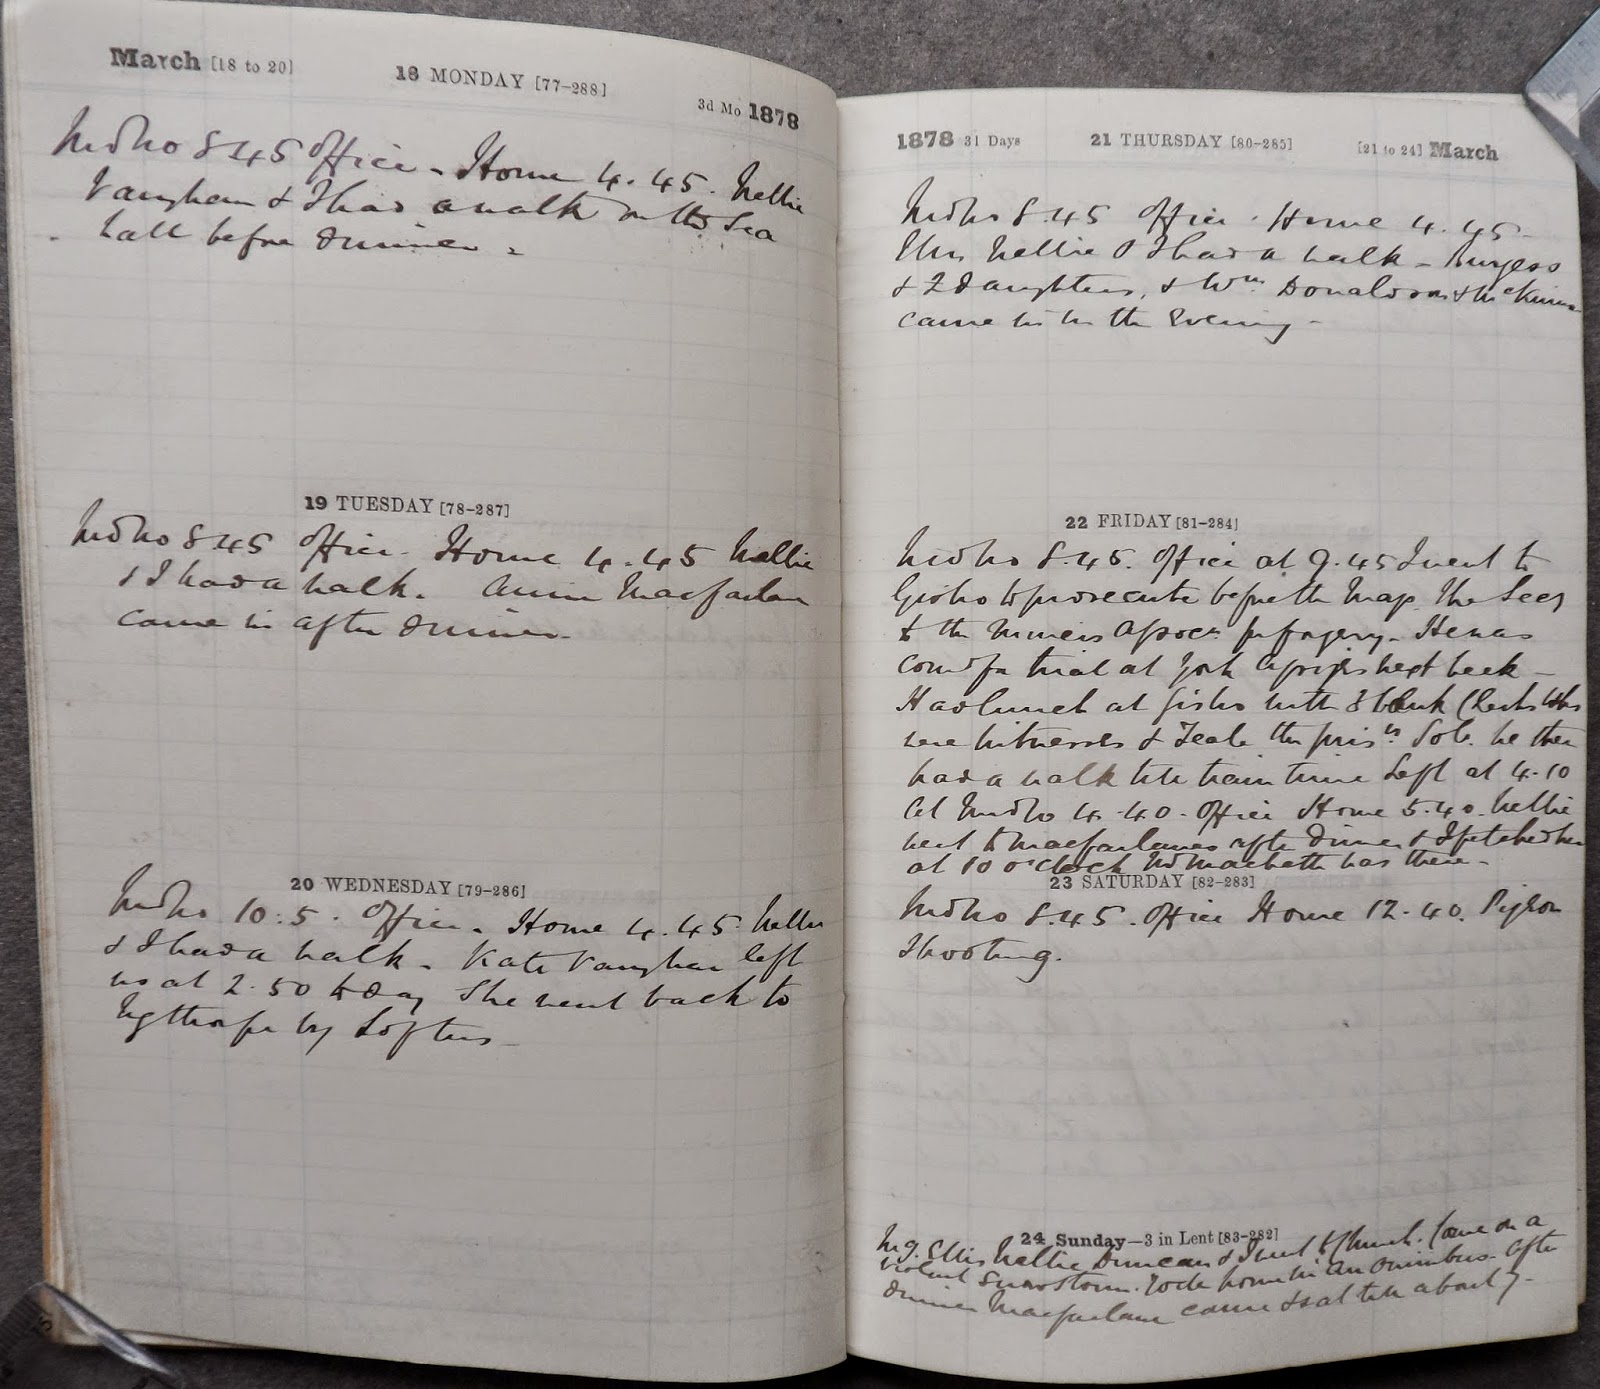 March [18 to 20]
18 MONDAY [77-288]
3d Mo 1878
Mdbro 8 45 Office - Home 4.45. Nellie
Vaughan & I had a walk on the Sea
Wall before dinner -
19 TUESDAY [78-287]
Mdbro 8 45 Office. Home 4.45 Nellie
& I had a walk. Annie Macfarlan
came in after dinner -
20 WEDNESDAY [79-286]
Mdbro 10.5. Office. Home 4.45. Nellie
& I had a walk - Kate Vaughan left
us at 2.50 to day She went back to
by Loftus -
1878 31 Days
21 THURSDAY [80-285]
[21 to 24] March
Mdbro 8.45 Office. Home 4.45 -
Nellie & I had a walk - Burgess
& 2 daughters, & Wm Donaldson & McKinnon
came in in the Evening -
22 FRIDAY [81-284]
Mdbro 8.45. Office at 9.45 I went to
Gisbro to prosecute before the Mag. the Secy
to the Miners Assocn for forgery - He was
comd for trial at York Assizes next week -
Had lunch at Gisbro with 3 bank Clerks who
were witnesses & Teale the pris'rs Solr. We then
had a walk till train time Left at 4.10
at Mdbro 4.40. Office Home 5.40. Nellie
went to Macfarlanes after dinner & I fetched her
at 10 o'clock Macbeth was there -
23 SATURDAY [82-283]
Mdbro 8.45. Office Home 12.40. Pigeon
Shooting.
24 Sunday—3 in Lent [83-282]
Mg. Ellis Nellie Duncan & I went to Church. Came on a
violent Snowstorm. Rode home in an Omnibus. After
dinner Macfarlane came & sat till about 7 -